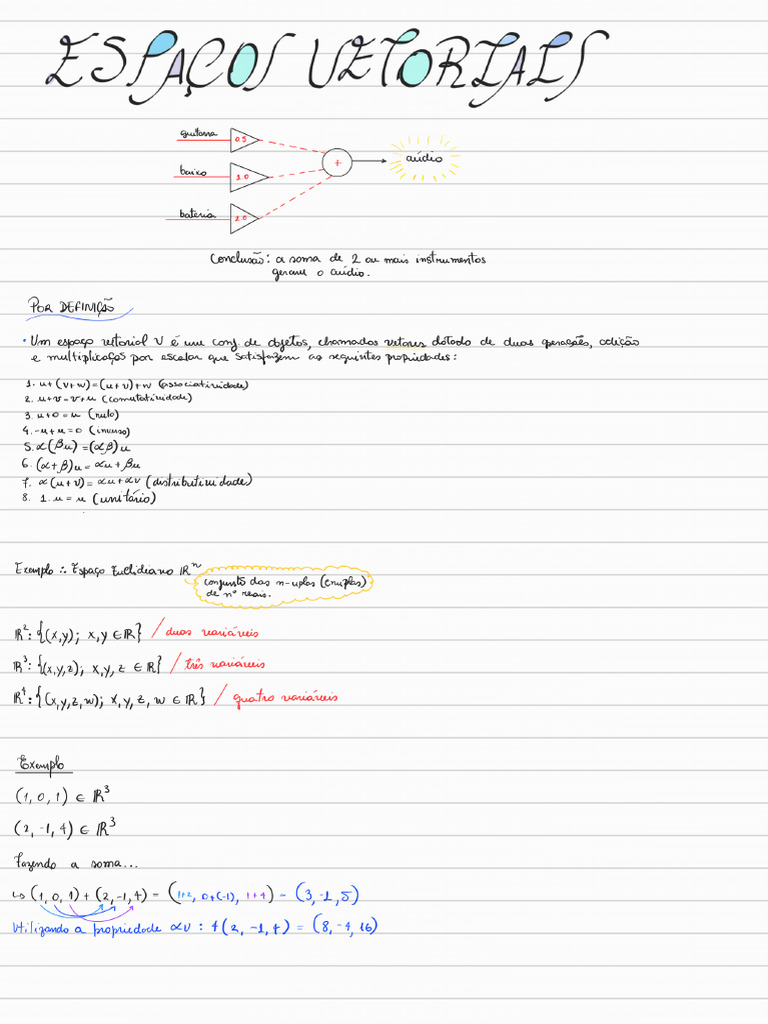 ESPAÇOS VETORIAIS
guitarra 0.5
baixo 1.0 + áudio
bateria 2.0
Conclusão: a soma de 2 ou mais instrumentos
geram o áudio.
POR DEFINIÇÃO
• Um espaço vetorial V é um conj. de objetos, chamados vetores dotado de duas operações, adição
e multiplicação por escalar que satisfazem as seguintes propriedades:
1. u+(v+w)=(u+v)+w (associatividade)
2. u+v=v+u (comutatividade)
3. u+0=u (nulo)
4. -u+u=0 (inverso)
5. α(βu)=(αβ)u
6. (α+β)u=αu+βu
7. α(u+v)=αu+αv (distributividade)
8. 1.u=u (unitário)
Exemplo ∴ Espaço Euclidiano ℝⁿ
conjunto das n-uplas (ênuplas)
de nº reais.
ℝ²: {(x,y); x,y ∈ ℝ} / duas variáveis
ℝ³: {(x,y,z); x,y,z ∈ ℝ} / três variáveis
ℝ⁴: {(x,y,z,w); x,y,z,w ∈ ℝ} / quatro variáveis
Exemplo
(1,0,1) ∈ ℝ³
(2,-1,4) ∈ ℝ³
Fazendo a soma...
↳ (1,0,1)+(2,-1,4) = (1+2, 0+(-1), 1+4) = (3,-1,5)
Utilizando a propriedade αv: 4(2,-1,4) = (8,-4,16)